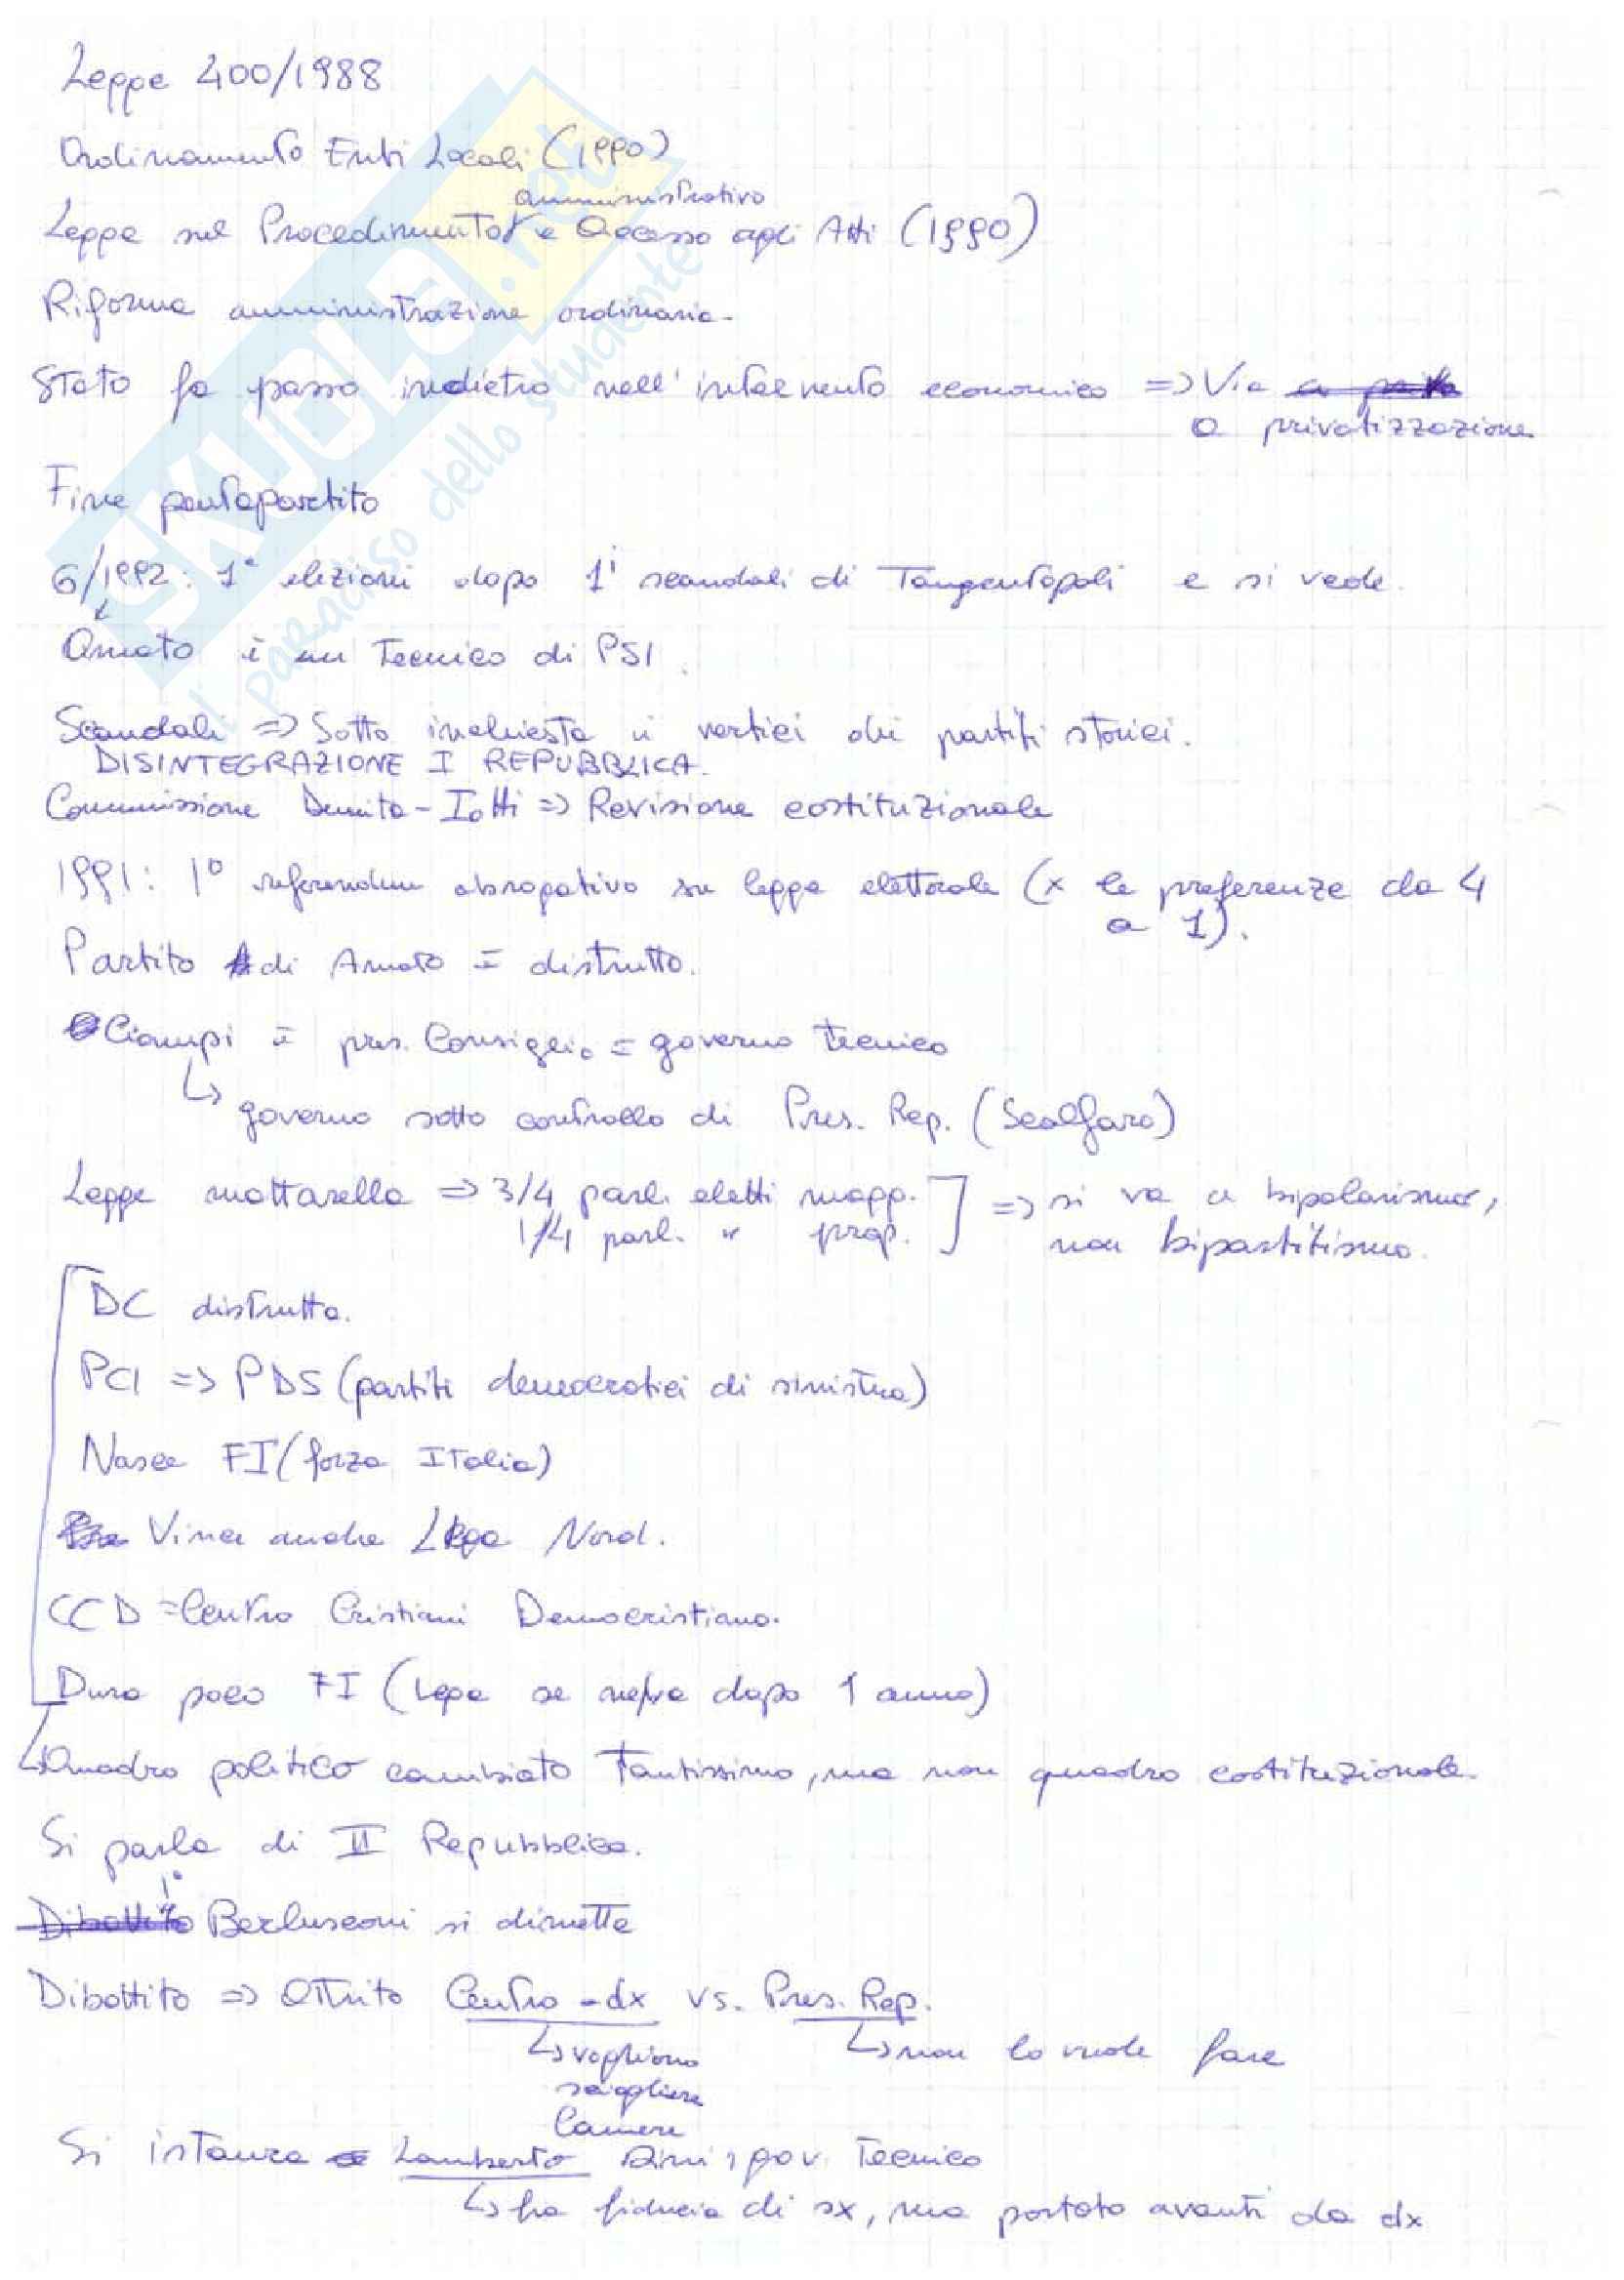 Legge 400/1988
Ordinamento Enti Locali (1990)
amministrativo
Legge sul Procedimento e Accesso agli Atti (1990)
Riforma amministrazione ordinaria.
Stato fa passo indietro nell'intervento economico => Via
a privatizzazione
Fine pentapartito
6/1992: 1e elezioni dopo 1i scandali di Tangentopoli e si vede.
Amato è un tecnico di PSI.
Scandali => Sotto inchiesta i vertici dei partiti storici.
DISINTEGRAZIONE I REPUBBLICA.
Commissione Demita-Iotti => Revisione costituzionale
1991: 1° referendum abrogativo su legge elettorale (x le preferenze da 4
a 1).
Partito di Amato è distrutto.
Ciampi è pres. Consiglio = governo tecnico
↳ governo sotto controllo di Pres. Rep. (Scalfaro)
Legge mattarella => 3/4 parl. eletti magg. ] => si va a bipolarismo,
1/4 parl. " prop. non bipartitismo.
DC distrutta.
PCI => PDS (partiti democratici di sinistra)
Nasce FI (forza Italia)
Vince anche Lega Nord.
CCD = Centro Cristiani Democristiano.
Dura poco FI (Lega se ne va dopo 1 anno)
↳ Quadro politico cambiato tantissimo, ma non quadro costituzionale.
Si parla di II Repubblica.
1°
Berlusconi si dimette
Dibattito => Attrito Centro-dx vs. Pres. Rep.
↳ vogliono ↳ non lo vuole fare
sciogliere
Camere
Si istaura Lamberto Dini, gov. tecnico
↳ ha fiducia di sx, ma portato avanti da dx
SKUOLA.net
il paradiso dello studente